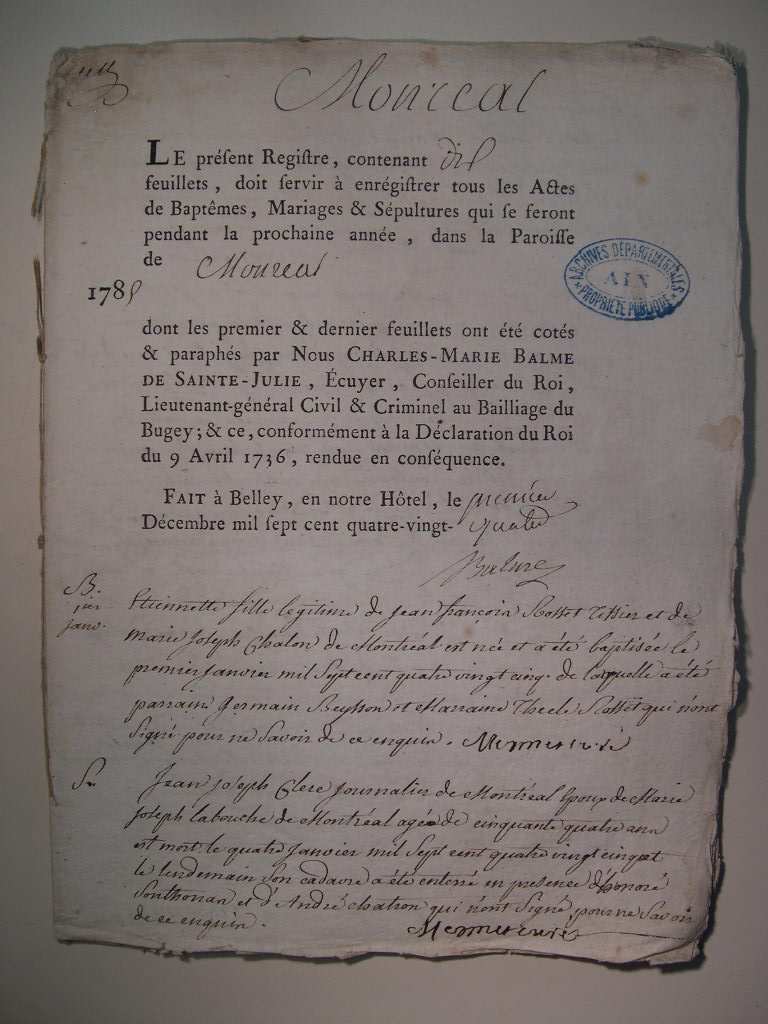 Monreal
LE préſent Regiſtre, contenant dix
feuillets, doit ſervir à enrégiſtrer tous les Actes
de Baptêmes, Mariages & Sépultures qui ſe feront
pendant la prochaine année, dans la Paroiſſe
de Monreal
ARCHIVES DÉPARTEMENTALES
AIN
PROPRIÉTÉ PUBLIQUE
1785
dont les premier & dernier feuillets ont été cotés
& paraphés par Nous CHARLES-MARIE BALME
DE SAINTE-JULIE, Écuyer, Conſeiller du Roi,
Lieutenant-général Civil & Criminel au Bailliage du
Bugey; & ce, conformément à la Déclaration du Roi
du 9 Avril 1736, rendue en conſéquence.
FAIT à Belley, en notre Hôtel, le premier
Décembre mil ſept cent quatre-vingt-quatre
Balme
B.
1er
janv.
Etiennette fille legitime de jean françois Rosset Tissier et de
marie joseph Chalon de Montréal est née et a été baptisée le
premier janvier mil Sept cent quatre vingt cinq. de laquelle a été
parrain Germain et Marraine Thecle Rosset qui n'ont
Signé pour ne Savoir de ce enquis.
Sr.
Jean joseph Clerc journalier de Montréal Epoux de Marie
joseph labouche de Montréal agé de cinquante quatre ans
est mort le quatre janvier mil Sept cent quatre vingt cinq et
le lendemain Son cadavre a été enterré en presence d'honoré
Sonthonax et d'André chatron qui n'ont Signé pour ne Savoir
de ce enquis.